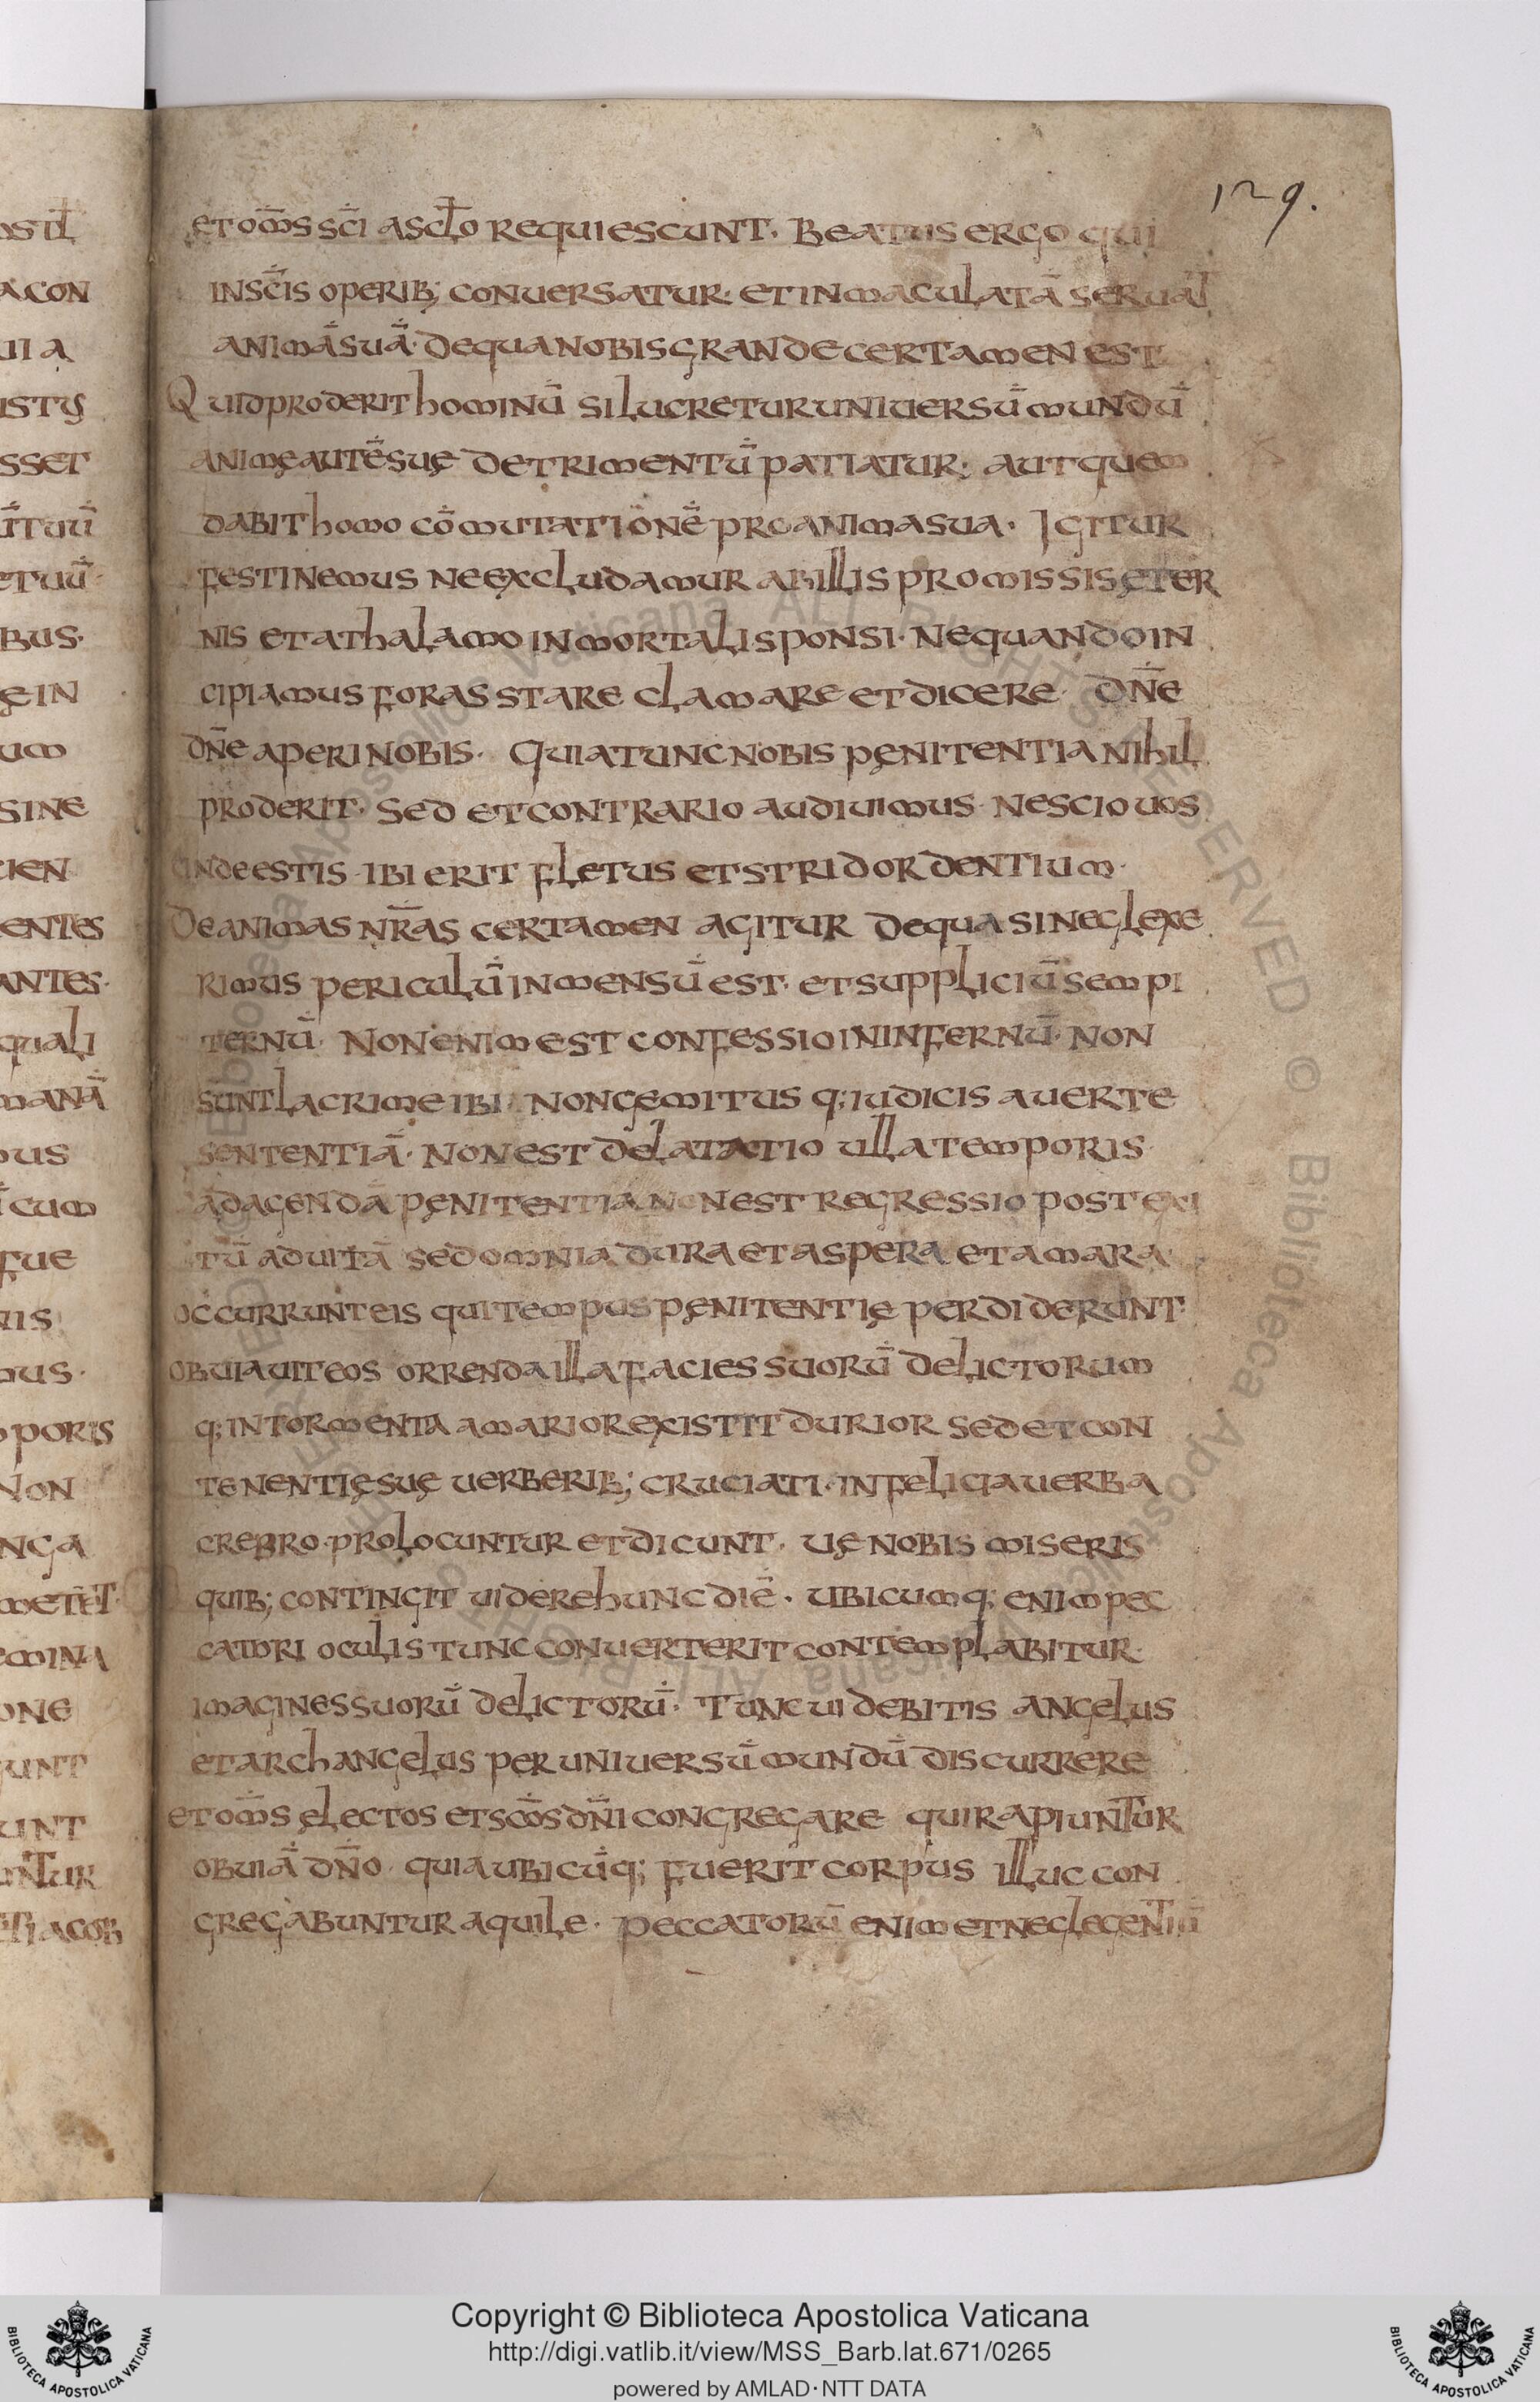 129.
et om̅s sc̅i a sclo requiescunt. Beatus ergo qui
in sc̅is operib; conuersatur. et inmaculata̅ seruat
anima̅ sua̅. de qua nobis grande certamen est
Quid proderit hominu̅ si lucretur uniuersu̅ mundu̅
animę aute̅ suę detrimentu̅ patiatur; aut quem
dabit homo co̅mutatione̅ pro anima sua. Igitur
festinemus ne excludamur ab illis promissis ęter
nis et a thalamo inmortali sponsi. ne quando in
cipiamus foras stare clamare et dicere. dn̅e
dn̅e aperi nobis. Quia tunc nobis pęnitentia nihil
proderit. sed et contrario audiuimus. nescio uos
unde estis. ibi erit fletus et stridor dentium.
De animas nr̅as certamen agitur de qua si neglexe
rimus periculu̅ inmensu̅ est. et suppliciu̅ sempi
ternu̅. Non enim est confessio in infernu̅. non
sunt lacrime ibi. non gemitus q; iudicis auerte
sententia̅. non est delatatio ulla temporis
ad agenda̅ pęnitentia non est regressio post exi
tu̅ ad uita̅ sed omnia dura et aspera et amara.
occurrunt eis qui tempus pęnitentię perdiderunt
obuiauit eos orrenda illa facies suoru̅ delictorum
q; in tormenta amarior existit durior sed et con
tenentię suę uerberib; cruciati. infelicia uerba
crebro prolocuntur et dicunt. uę nobis miseris
quib; contingit uidere hunc die̅. ubicumq; enim pec
catori oculis tunc conuerterit contemplabitur.
imagines suoru̅ delictoru̅. Tunc uidebitis angelus
et archangelus per uniuersu̅ mundu̅ discurrere
et om̅s electos et sc̅os dn̅i congregare qui rapiuntur
obuia̅ dn̅o. quia ubicu̅q; fuerit corpus illuc con
gregabuntur aquile. peccatoru̅ enim et neglegentiu̅
Copyright © Biblioteca Apostolica Vaticana
http://digi.vatlib.it/view/MSS_Barb.lat.671/0265
powered by AMLAD·NTT DATA